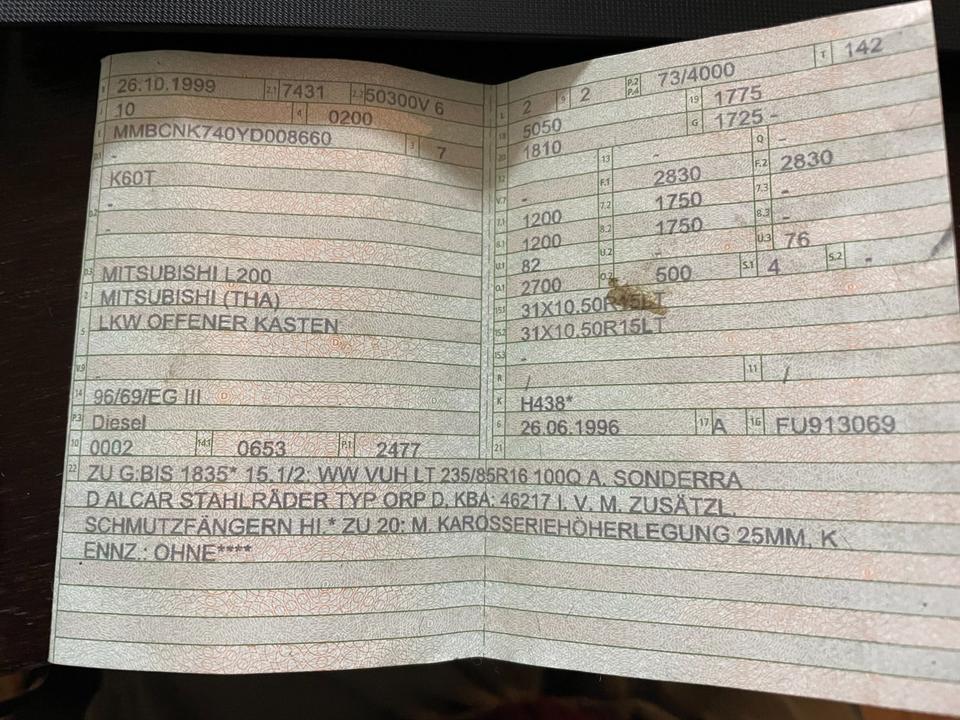 26.10.1999 2.1 7431 2.2 50300V 6
J 10 4 0200
E MMBCNK740YD008660 3 7
D.1 -
K60T
D.2 -
-
D.3 MITSUBISHI L200
2 MITSUBISHI (THA)
5 LKW OFFENER KASTEN
V.9 -
14 96/69/EG III
P.3 Diesel
10 0002 14.1 0653 P.1 2477
L 2 9 2 P.2 P.4 73/4000 T 142
18 5050 19 1775
20 1810 G 1725 -
12 13 - Q -
V.7 - F.1 2830 F.2 2830
7.1 1200 7.2 1750 7.3 -
8.1 1200 8.2 1750 8.3 -
U.1 82 U.2 U.3 76
O.1 2700 O.2 500 S.1 4 S.2 -
15.1 31X10.50R15LT
15.2 31X10.50R15LT
15.3 -
R / 11 /
K H438*
6 26.06.1996 17 A 16 FU913069
21
22 ZU G:BIS 1835* 15.1/2: WW VUH LT 235/85R16 100Q A. SONDERRA
D ALCAR STAHLRÄDER TYP ORP D. KBA: 46217 I. V. M. ZUSÄTZL.
SCHMUTZFÄNGERN HI.* ZU 20: M. KAROSSERIEHÖHERLEGUNG 25MM. K
ENNZ.: OHNE****